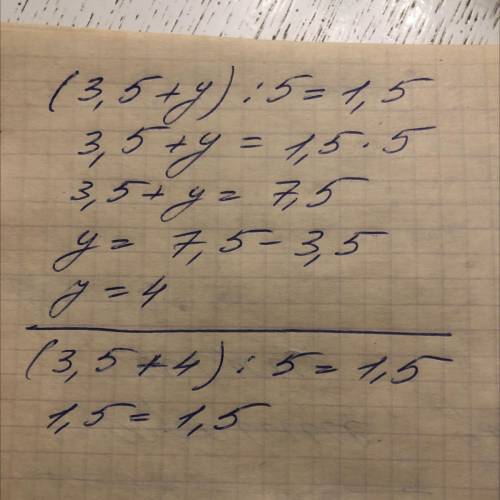 (3,5+y):5=1,5
3,5+y=1,5·5
3,5+y=7,5
y=7,5-3,5
y=4
(3,5+4):5=1,5
1,5=1,5